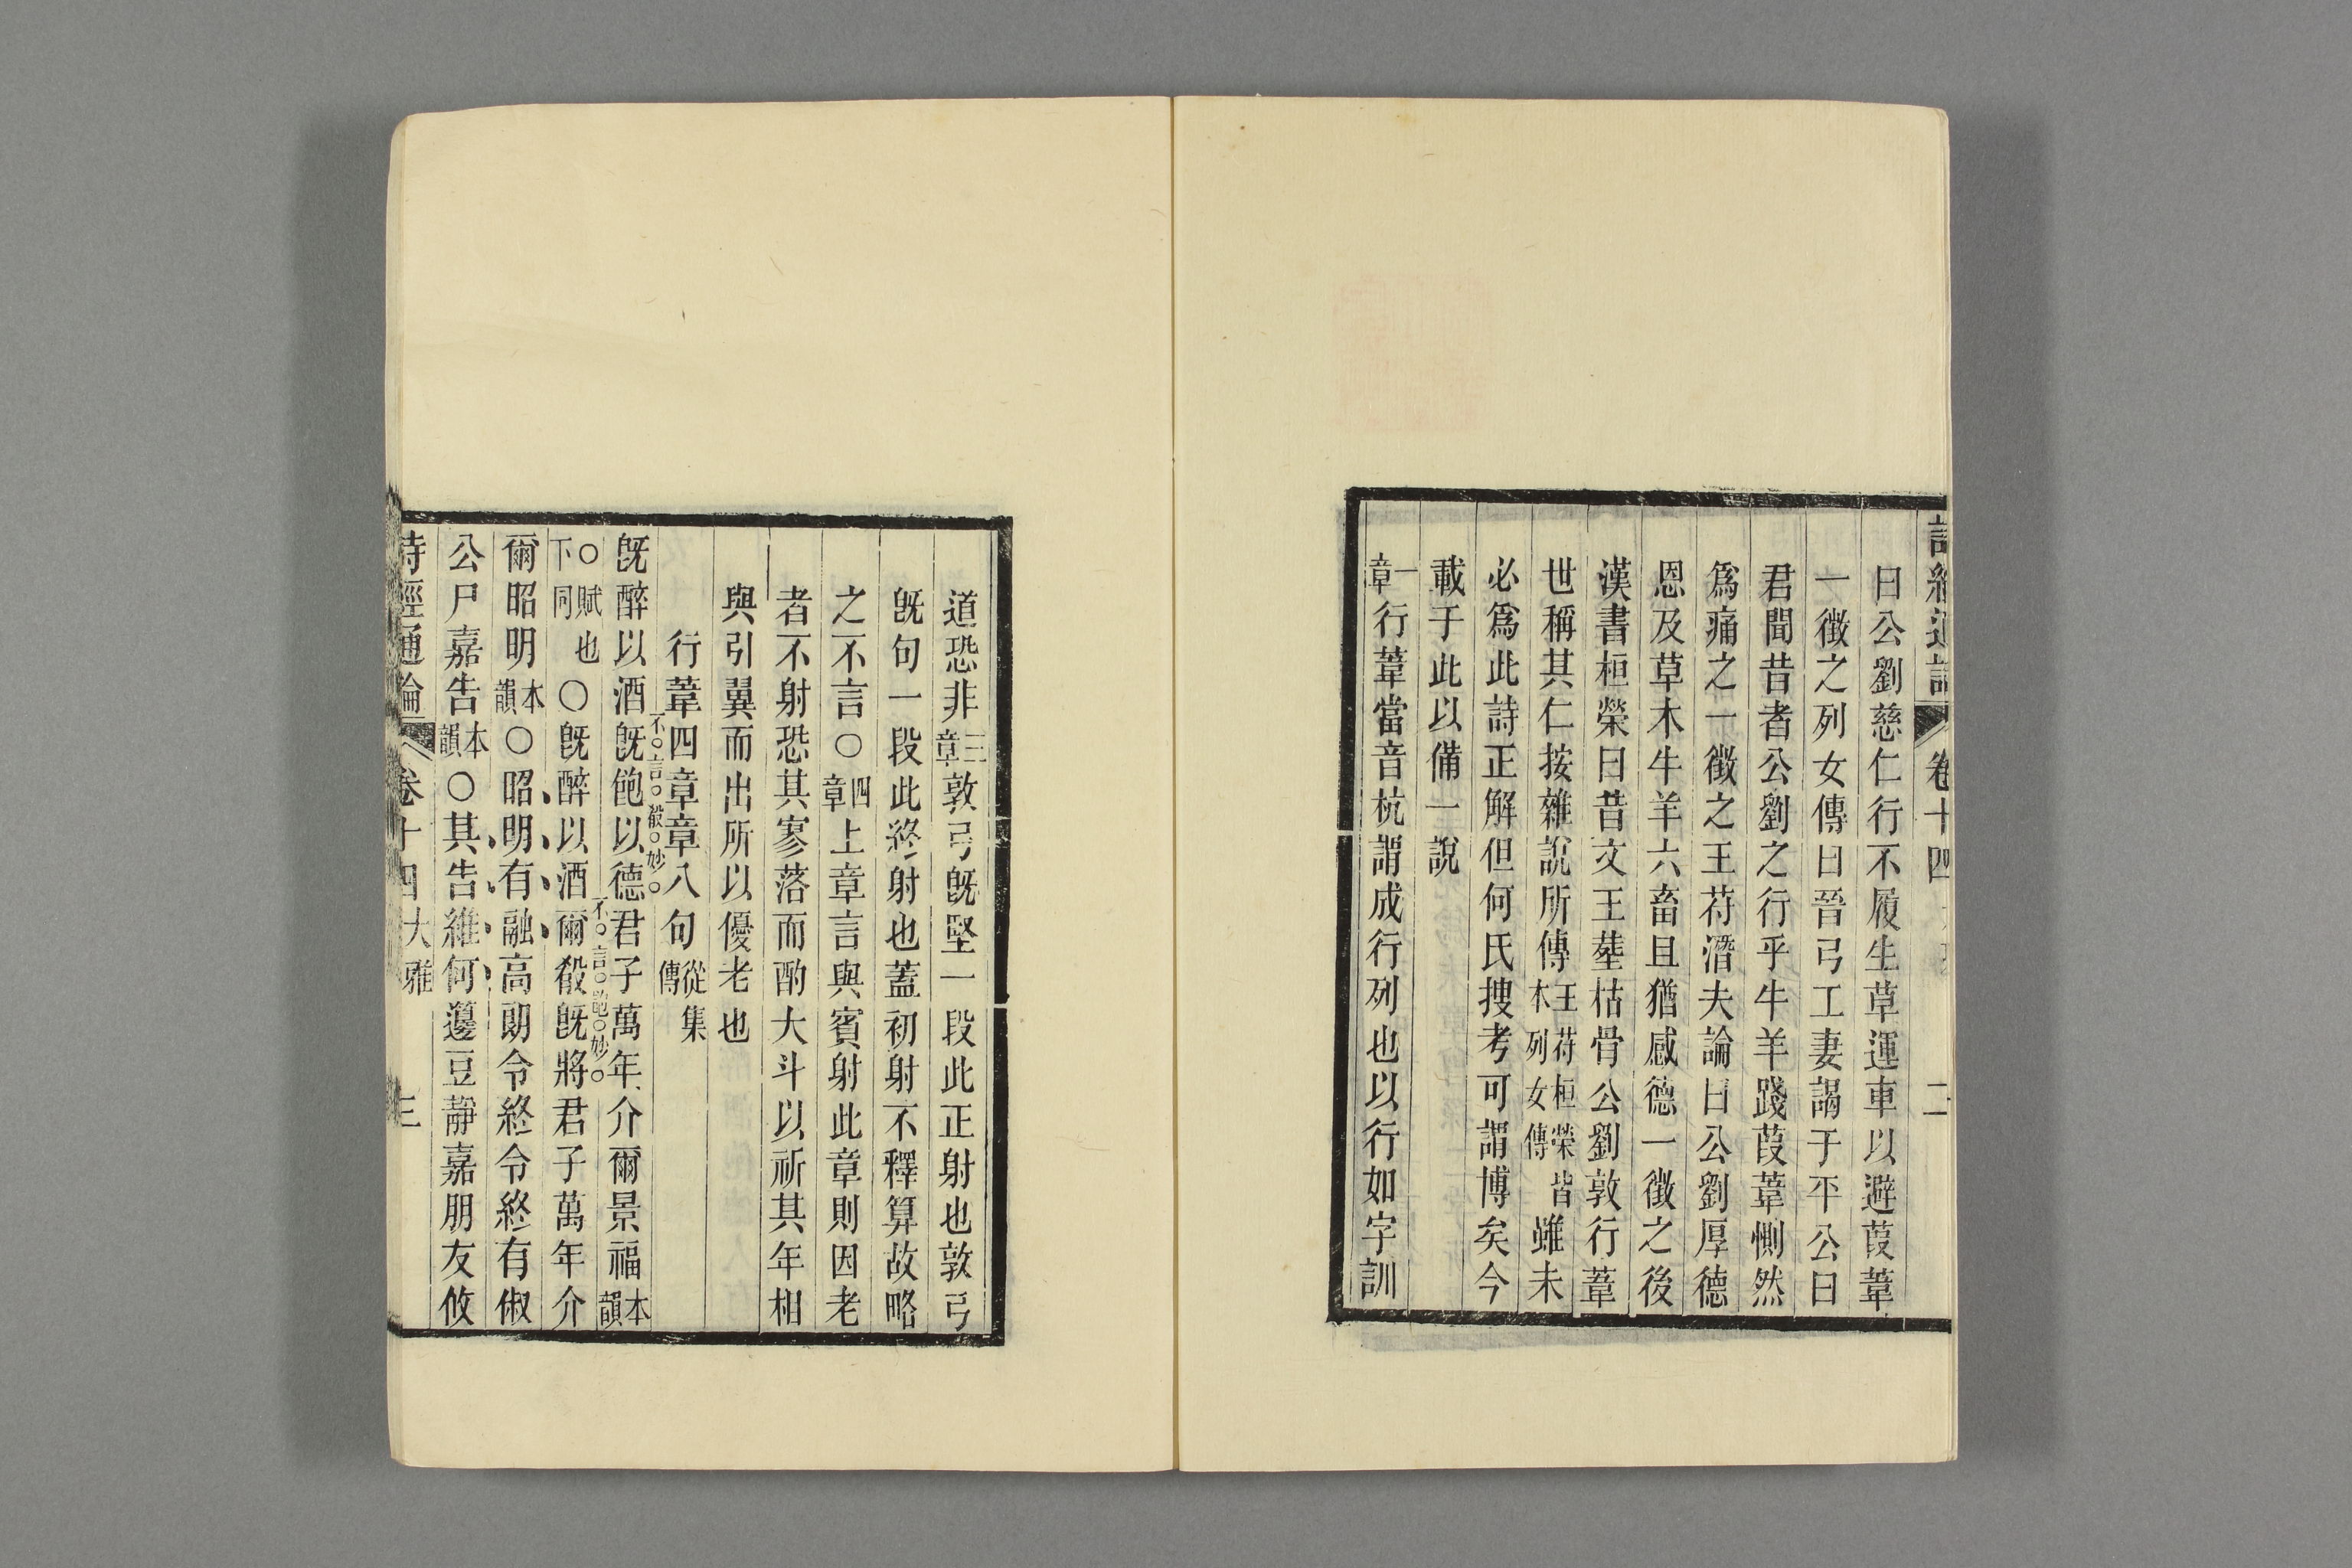 詩經通論 卷十四 二
曰公劉慈仁行不履生草運車以避葭葦
一徵之列女傳曰晉弓工妻謁于平公曰
君聞昔者公劉之行乎牛羊踐葭葦惻然
爲痛之一徵之王符潛夫論曰公劉厚德
恩及草木牛羊六畜且猶感德一徵之後
漢書桓榮曰昔文王葬枯骨公劉敦行葦
世稱其仁按雜說所傳王符桓榮皆木列女傳雖未
必爲此詩正解但何氏搜考可謂博矣今
載于此以備一說
一章行葦當音杭謂成行列也以行如字訓
道恐非三章敦弓旣堅一段此正射也敦弓
旣句一段此終射也蓋初射不釋算故略
之不言〇四章上章言與賓射此章則因老
者不射恐其寥落而酌大斗以祈其年相
與引翼而出所以優老也
行葦四章章八句從集傳
旣醉以酒旣飽以德君子萬年介爾景福本韻
不言殽妙
〇賦也下同〇旣醉以酒爾殽旣將君子萬年介
不言飽妙
爾昭明本韻〇昭明有融高朗令終令終有俶
公尸嘉告本韻〇其告維何籩豆靜嘉朋友攸
詩經通論 卷十四大雅 三